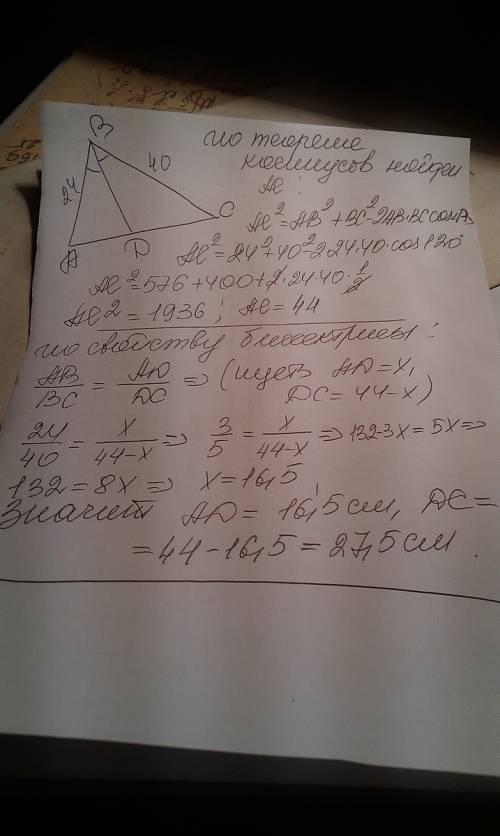 B
24
40
A
D
C
по теореме
косинусов найдем
AC:
AC² = AB² + BC² - 2AB·BC cos∠B
AC² = 24² + 40² - 2·24·40·cos120°
AC² = 576 + 400 + 2·24·40·1/2
AC² = 1936; AC = 44
по свойству биссектрисы:
AB/BC = AD/DC ⇒ (пусть AD = x,
DC = 44-x)
24/40 = x/44-x ⇒ 3/5 = x/44-x ⇒ 132-3x = 5x ⇒
132 = 8x ⇒ x = 16,5
Значит AD = 16,5 см, DC =
= 44 - 16,5 = 27,5 см.